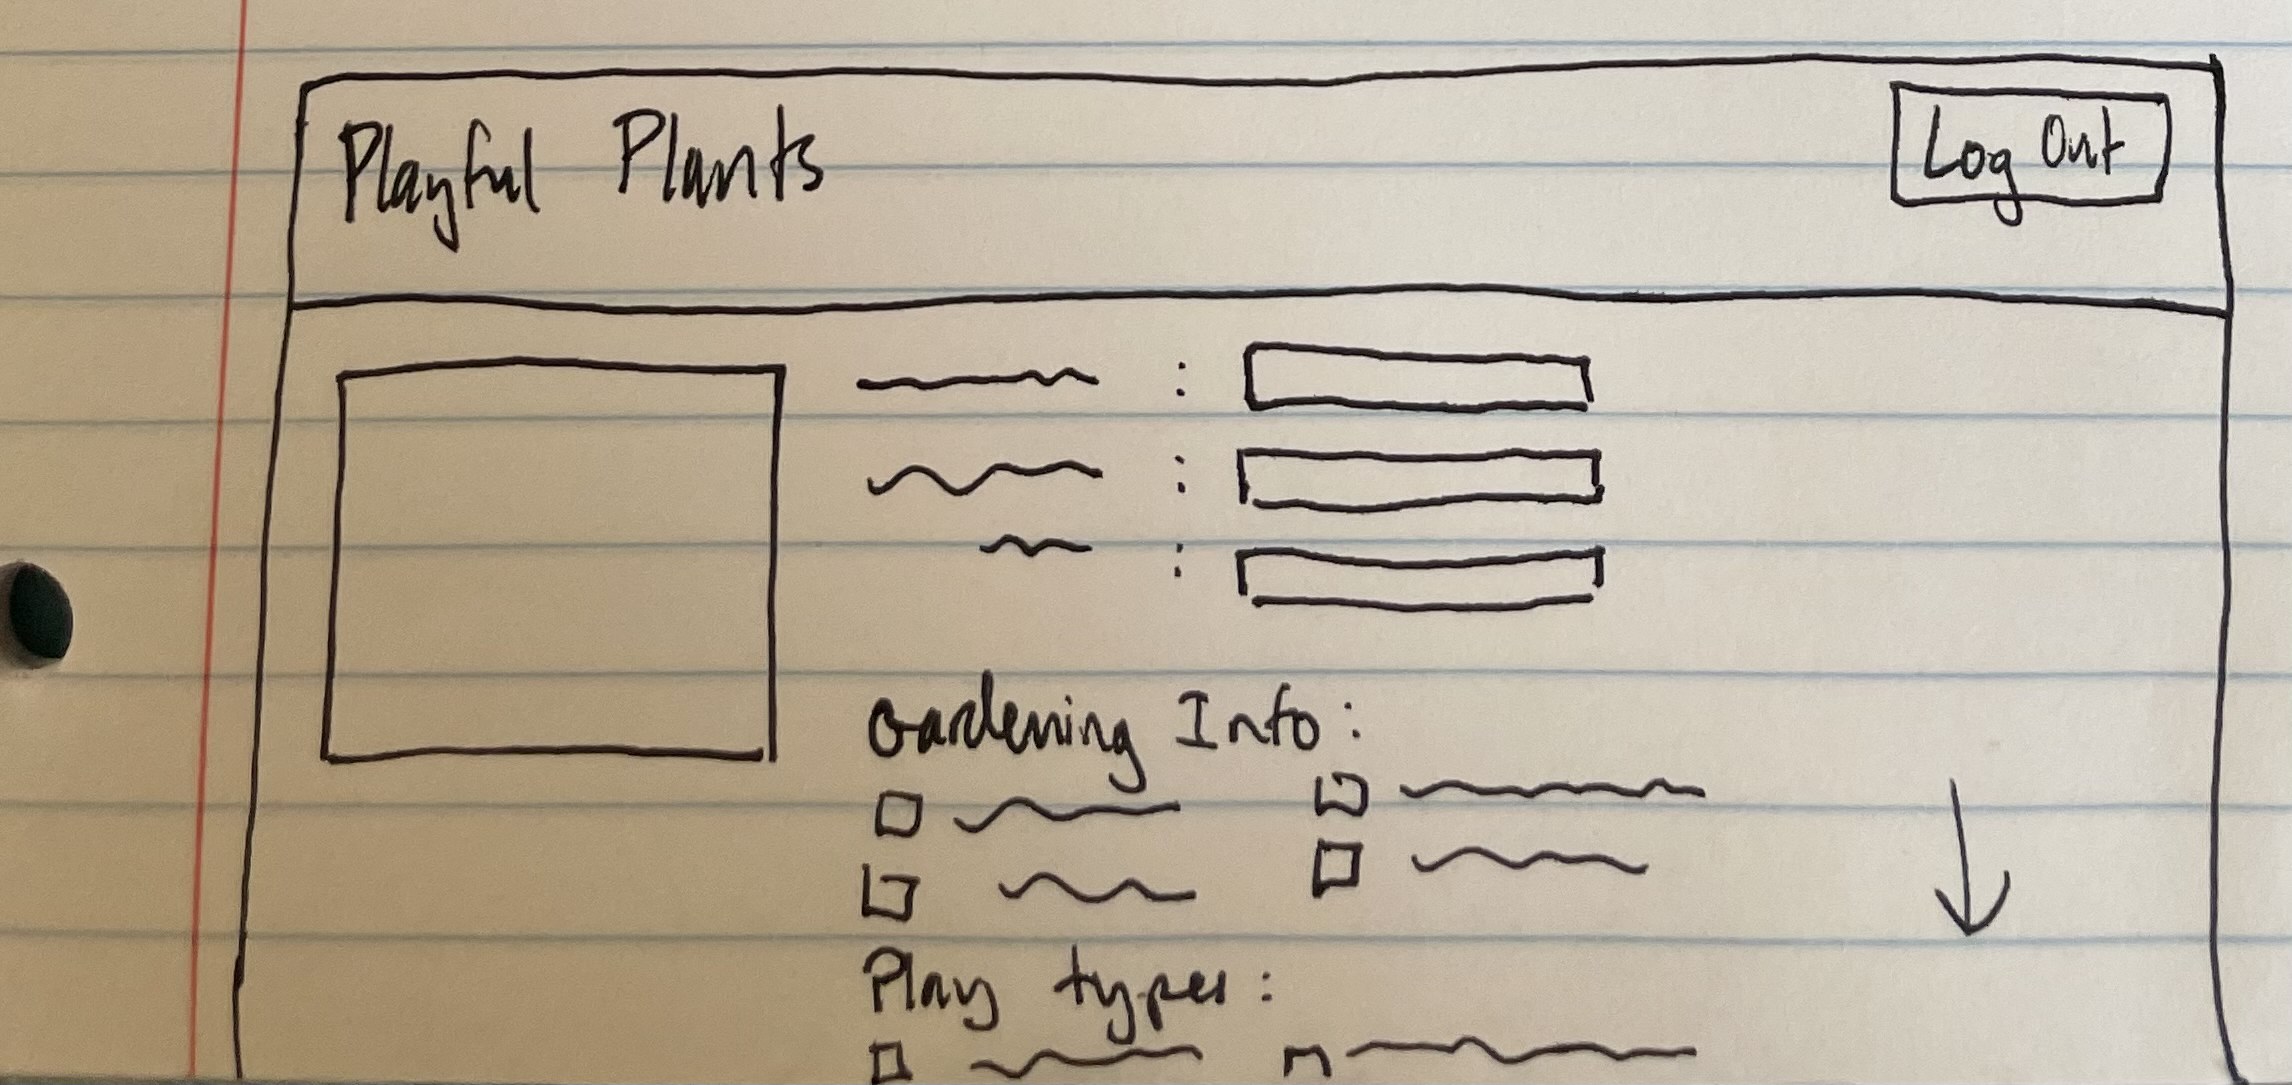 Playful Plants
Log Out
:
:
:
Gardening Info:
Play types: